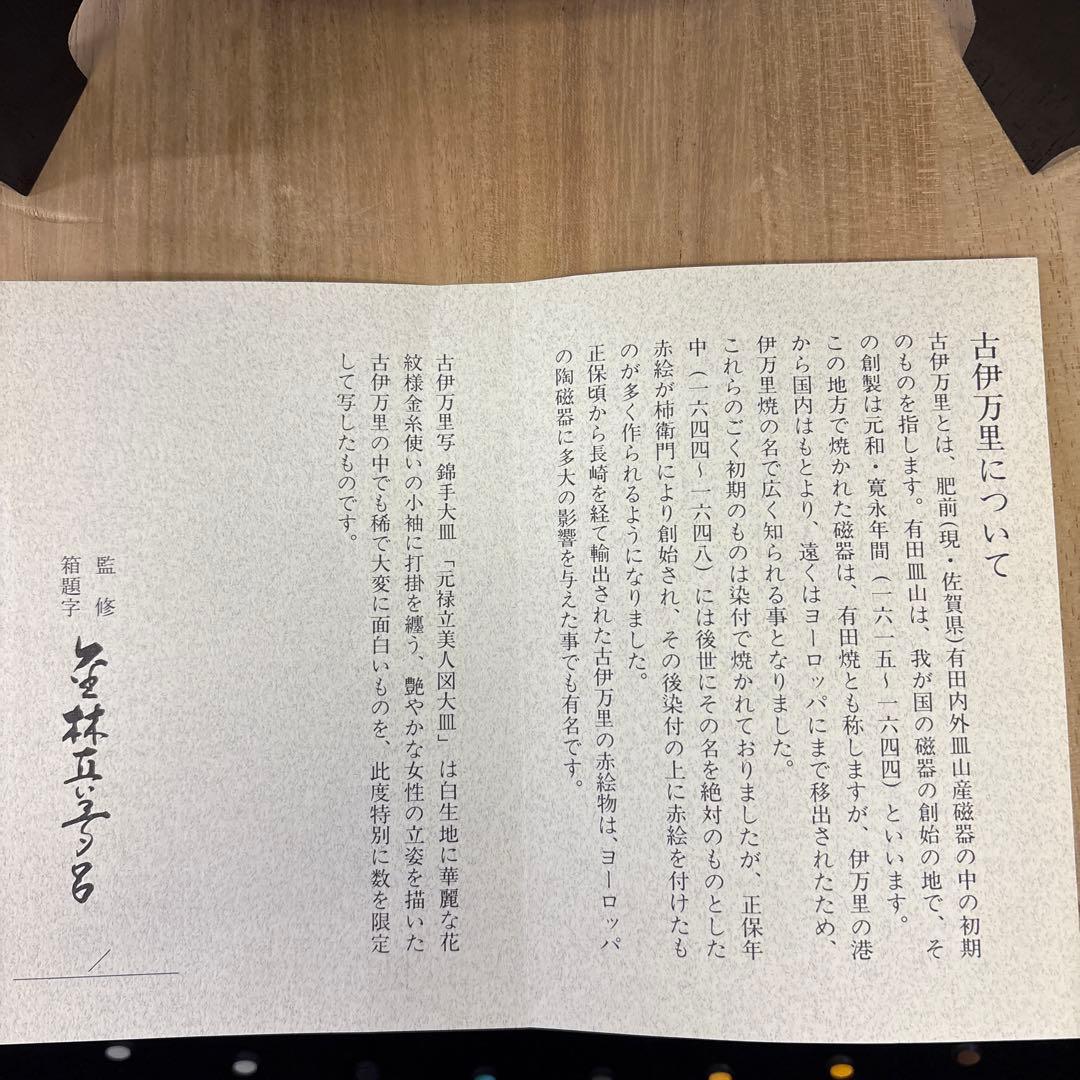 古伊万里について
古伊万里とは、肥前(現・佐賀県)有田内外皿山産磁器の中の初期
のものを指します。有田皿山は、我が国の磁器の創始の地で、そ
の創製は元和・寛永年間(一六一五〜一六四四)といいます。
この地方で焼かれた磁器は、有田焼とも称しますが、伊万里の港
から国内はもとより、遠くはヨーロッパにまで移出されたため、
伊万里焼の名で広く知られる事となりました。
これらのごく初期のものは染付で焼かれておりましたが、正保年
中(一六四四〜一六四八)には後世にその名を絶対のものとした
赤絵が柿衛門により創始され、その後染付の上に赤絵を付けたも
のが多く作られるようになりました。
正保頃から長崎を経て輸出された古伊万里の赤絵物は、ヨーロッパ
の陶磁器に多大の影響を与えた事でも有名です。
古伊万里写 錦手大皿「元禄立美人図大皿」は白生地に華麗な花
紋様金糸使いの小袖に打掛を纏う、艶やかな女性の立姿を描いた
古伊万里の中でも稀で大変に面白いものを、此度特別に数を限定
して写したものです。
監修
箱題字
/